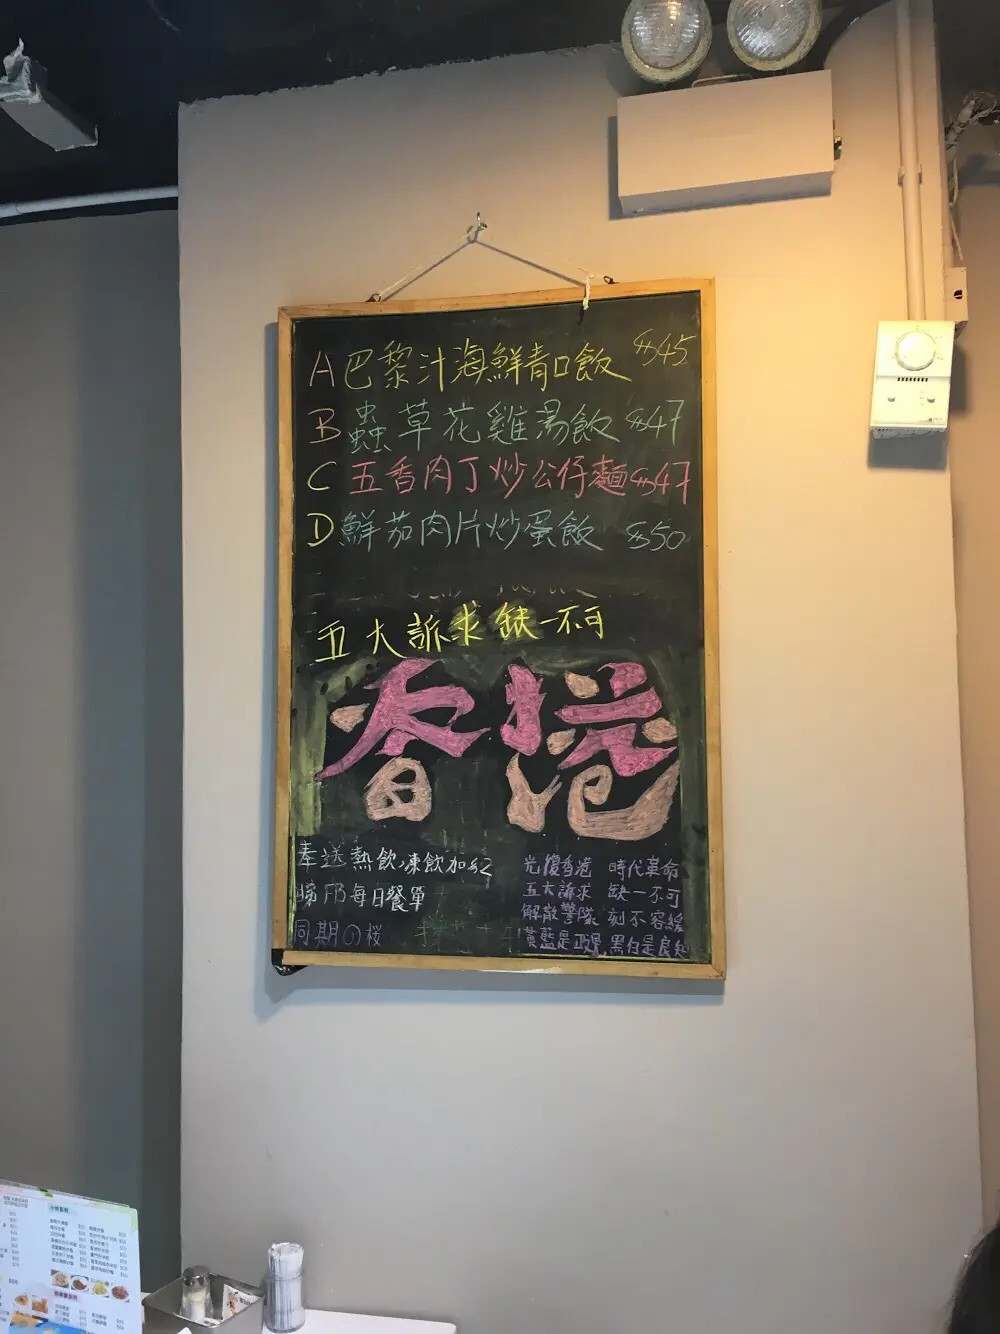 A 巴黎汁海鮮青口飯 $45
B 蟲草花雞湯飯 $47
C 五香肉丁炒公仔麵 $47
D 鮮茄肉片炒蛋飯 $50
五大訴求 缺一不可
香港
奉送熱飲,凍飲加$2
睇FB每日餐單
同期の桜
光復香港 時代革命
五大訴求 缺一不可
解散警隊 刻不容緩
黃藍是政見,黑白是良知